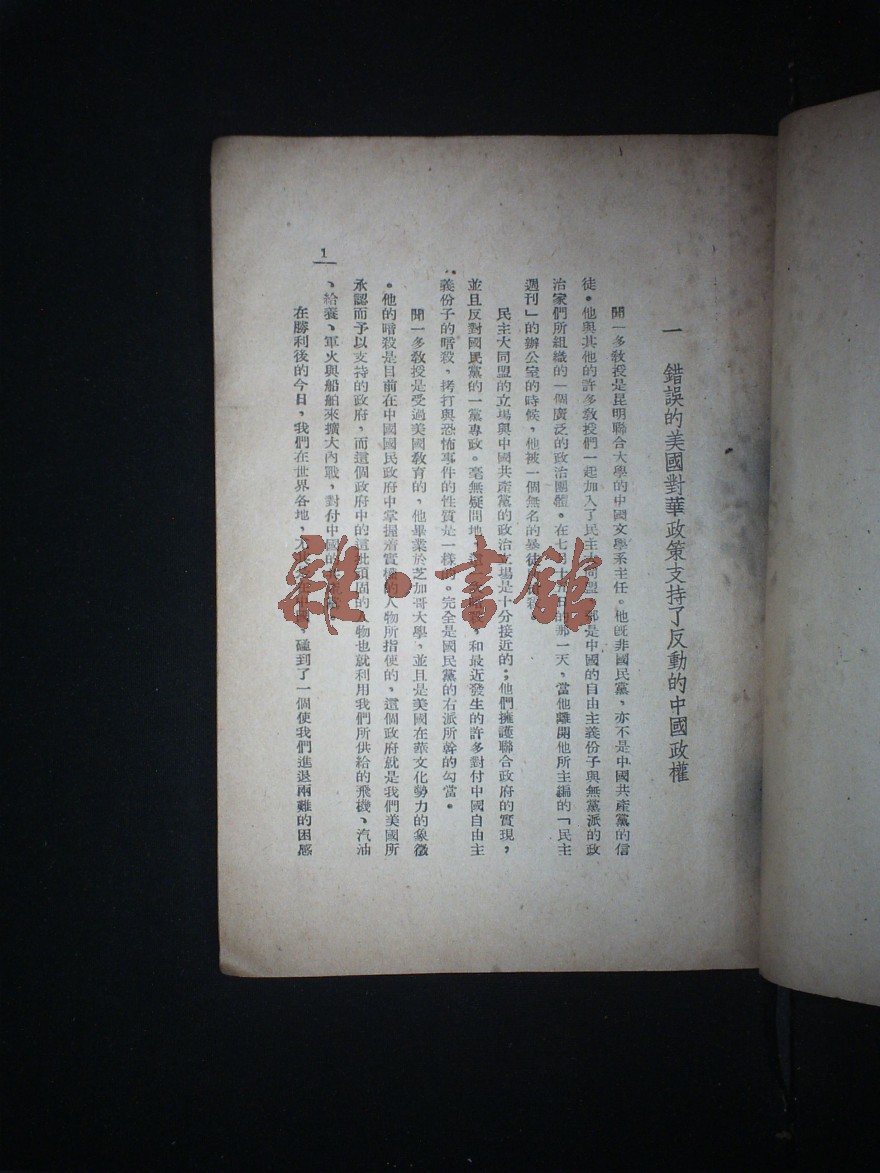 一 錯誤的美國對華政策支持了反動的中國政權
聞一多教授是昆明聯合大學的中國文學系主任。他旣非國民黨，亦不是中國共產黨的信
徒。他與其他的許多敎授們一起加入了民主同盟，都是中國的自由主義份子與無黨派的政
治家們所組織的一個廣泛的政治團體。在七月 日的那一天，當他離開他所主編的「民主
週刊」的辦公室的時候，他被一個無名的暴徒
民主大同盟的立場與中國共產黨的政治立場是十分接近的；他們擁護聯合政府的實現，
並且反對國民黨的一黨專政。毫無疑問地， 和最近發生的許多對付中國自由主
義份子的暗殺，拷打與恐怖事件的性質是一樣 。完全是國民黨的右派所幹的勾當。
聞一多敎授是受過美國敎育的，他畢業於芝加哥大學，並且是美國在華文化勢力的象徵
。他的暗殺是目前在中國國民政府中掌握着實權的人物所指使的，這個政府就是我們美國所
承認而予以支持的政府，而這個政府中的這批頑固的人物也就利用我們所供給的飛機、汽油
、給養、軍火與船舶來擴大內戰，對付中國的
在勝利後的今日，我們在世界各地， 在中國，碰到了一個使我們進退兩難的困惑
1
雜·書館